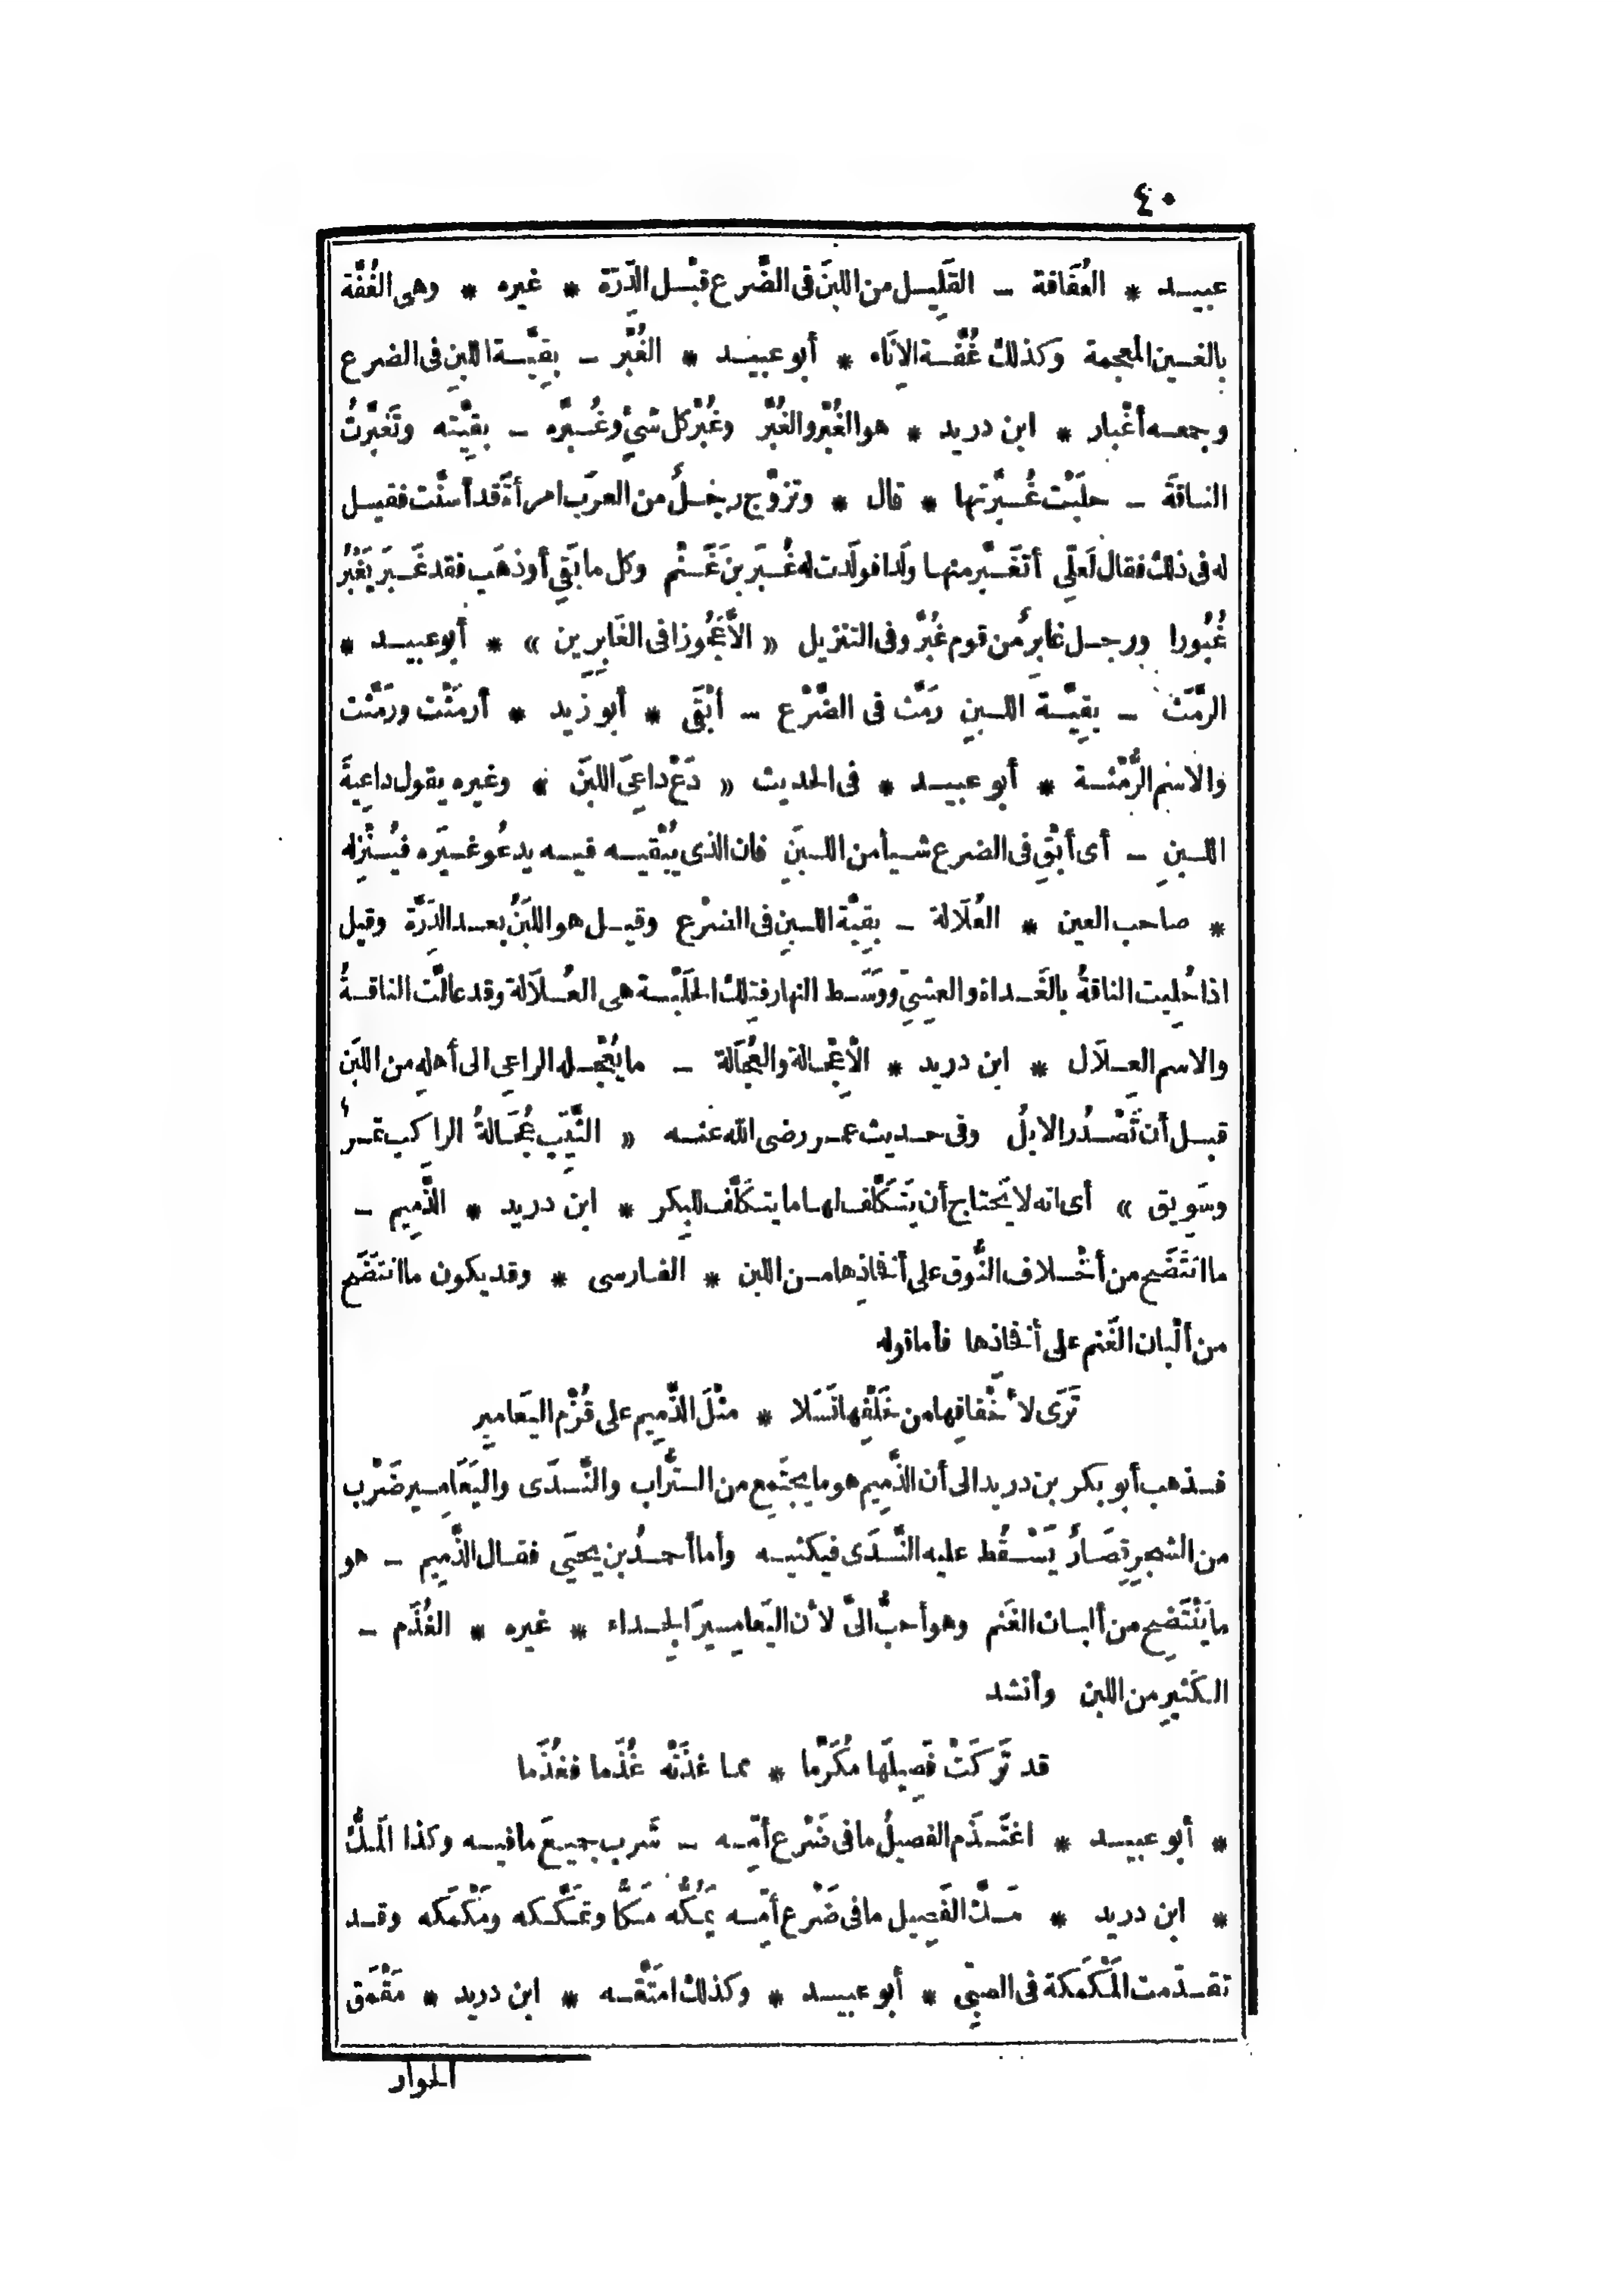 ٤٠
عبيد * العُفَافة - القَلِيل من اللبَن فى الضَّرع قبْل الدِّرَة * غيره * وهى الغُفَّة
بالغين المعجمة وكذلك غُفَّة الاِنَاء * أبو عبيد * الغُبْر - بقِيَّة اللبَنِ فى الضرع
وجمعه أغْبار * ابن دريد * هو الغُبْر والغُبَّر وغُبْر كل شئٍ وغُبَّره - بقيَّته وتَغَبَّرتُ
الناقةَ - حلَبْت غُبَّرتها * قال * وتزوّج رجُلٌ من العرَب امرأةً قد أسنَّت فقيل
له فى ذلك فقال لَعلِّى أتغَبَّر منها ولَدا فولَدت له غُبَر بنَ غَنْم وكل ما بَقِى أو ذهَب فقد غَبَرَ يَغْبُر
غُبُورا ورجل غابِرٌ من قوم غُبَّر وفى التنزيل « الاَّ عَجُوزا فى الغَابِرِين » * أبو عبيد *
الرَّمَث - بقِيَّة اللبنِ رَمَّث فى الضَّرْع - أبْقَى * أبو زيد * أرمَثْت ورَمَّثت
والاسْم الرُّمْثة * أبو عبيد * فى الحديث « دَعْ داعِىَ اللبَن » وغيره يقول داعِيةَ
اللبنِ - أى أبْقِ فى الضرع شيأ من اللبَنِ فان الذى يُبْقيه فيه يدعُو غيَره فيُنْزِله
* صاحب العين * العُلَالة - بقِيَّة اللبنِ فى الضرْع وقيل هو اللبَنُ بعد الدِّرَّة وقيل
اذا حُلِبت الناقةُ بالغَداة والعشِىِّ ووَسَط النهار فتِلك الحَلْبة هى العُلاَلة وقد عالَّت الناقةُ
والاسم العِلَال * ابن دريد * الاِعْجالة والعُجَالة - ما يُعْجِله الراعِى الى أهلِه من اللبَن
قبل أن تَصْدُر الابلُ وفى حديث عمر رضى الله عنه « الثَّيِّب عُجَالةُ الراكب تمرٌ
وسَوِيق » أى انه لا يَحْتاج أن يَتَكَلَّف لها ما يتكَلَّف للبِكر * ابن دريد * الذَّمِيم -
ما انتَضَح من أخْلاف النُّوق على أفخاذِها من اللبن * الفارسى * وقد يكون ما انتَضَح
من ألْبان الغَنم على أفخاذها فأما قوله
تَرَى لأَخْفافِها من خَلْفِها نَسَلا * مثْلَ الذَّمِيم على قُزْم اليَعامير
فذهب أبو بكر بن دريد الى أن الذَّمِيم هو ما يجتَمِع من التُّراب والنَّدَى واليَعَامِير ضَرْب
من الشجر قِصَارٌ يَسْقُط عليه النَّدَى فيكثبه وأما أحمدُ بن يحيَى فقال الذَّمِيم - هو
ما يَنْتَضِح من ألبان الغَنم وهو أحبُّ الىَّ لأن اليَعامِيرَ الجِداء * غيره * الغُذَم -
الكَثِير من اللبن وأنشد
قد تَرَكَتْ فَصِيلَها مُكَرَّما * مما غذَتْه غُذَما فغُذَما
* أبو عبيد * اغتَذَم الفصيلُ ما فى ضَرْع أمِّه - شَرب جميعَ ما فيه وكذا المَكُّ
* ابن دريد * مَكَّ الفَصِيل ما فى ضَرْع أمّه يَمُكُّه مَكًّا وتمَكَّكه ومَكْمَكه وقد
تقدّمت المَكْمَكة فى الصبِى * أبو عبيد * وكذلك امتَقَّه * ابن دريد * مَقْمَق
الحوار